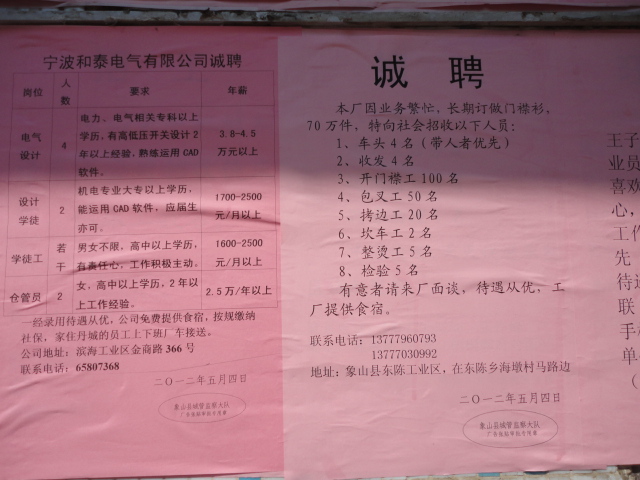 宁波和泰电气有限公司诚聘
岗位 人数 要求 年薪
电气设计 4 电力、电气相关专科以上
学历，有高低压开关设计2
年以上经验，熟练运用CAD
软件。
3.8-4.5
万元以上
设计学徒 2 机电专业大专以上学历，
能运用CAD软件，应届生
亦可。
1700-2500
元/月以上
学徒工 若干 男女不限，高中以上学历，
有责任心，工作积极主动。
1600-2500
元/月以上
仓管员 2 女，高中以上学历，2年以
上工作经验。
2.5万/年以上
一经录用待遇从优，公司免费提供食宿，按规缴纳
社保，家住丹城的员工上下班厂车接送。
公司地址：滨海工业区金商路366号
联系电话：65807368
二〇一二年五月四日
象山县城管监察大队
广告张贴审批专用章
诚聘
本厂因业务繁忙、长期订做门襟衫，
70万件，特向社会招收以下人员：
1、车头4名（带人者优先）
2、收发4名
3、开门襟工100名
4、包叉工50名
5、拷边工20名
6、坎车工2名
7、整烫工5名
8、检验5名
有意者请来厂面谈，待遇从优，工
厂提供食宿。
联系电话：13777960793
13777030992
地址：象山县东陈工业区，在东陈乡海墩村马路边
二〇一二年五月四日
象山县城管监察大队
广告张贴审批专用章
王子
业员
喜欢
心，
工作
先
待遇
联
手机
（